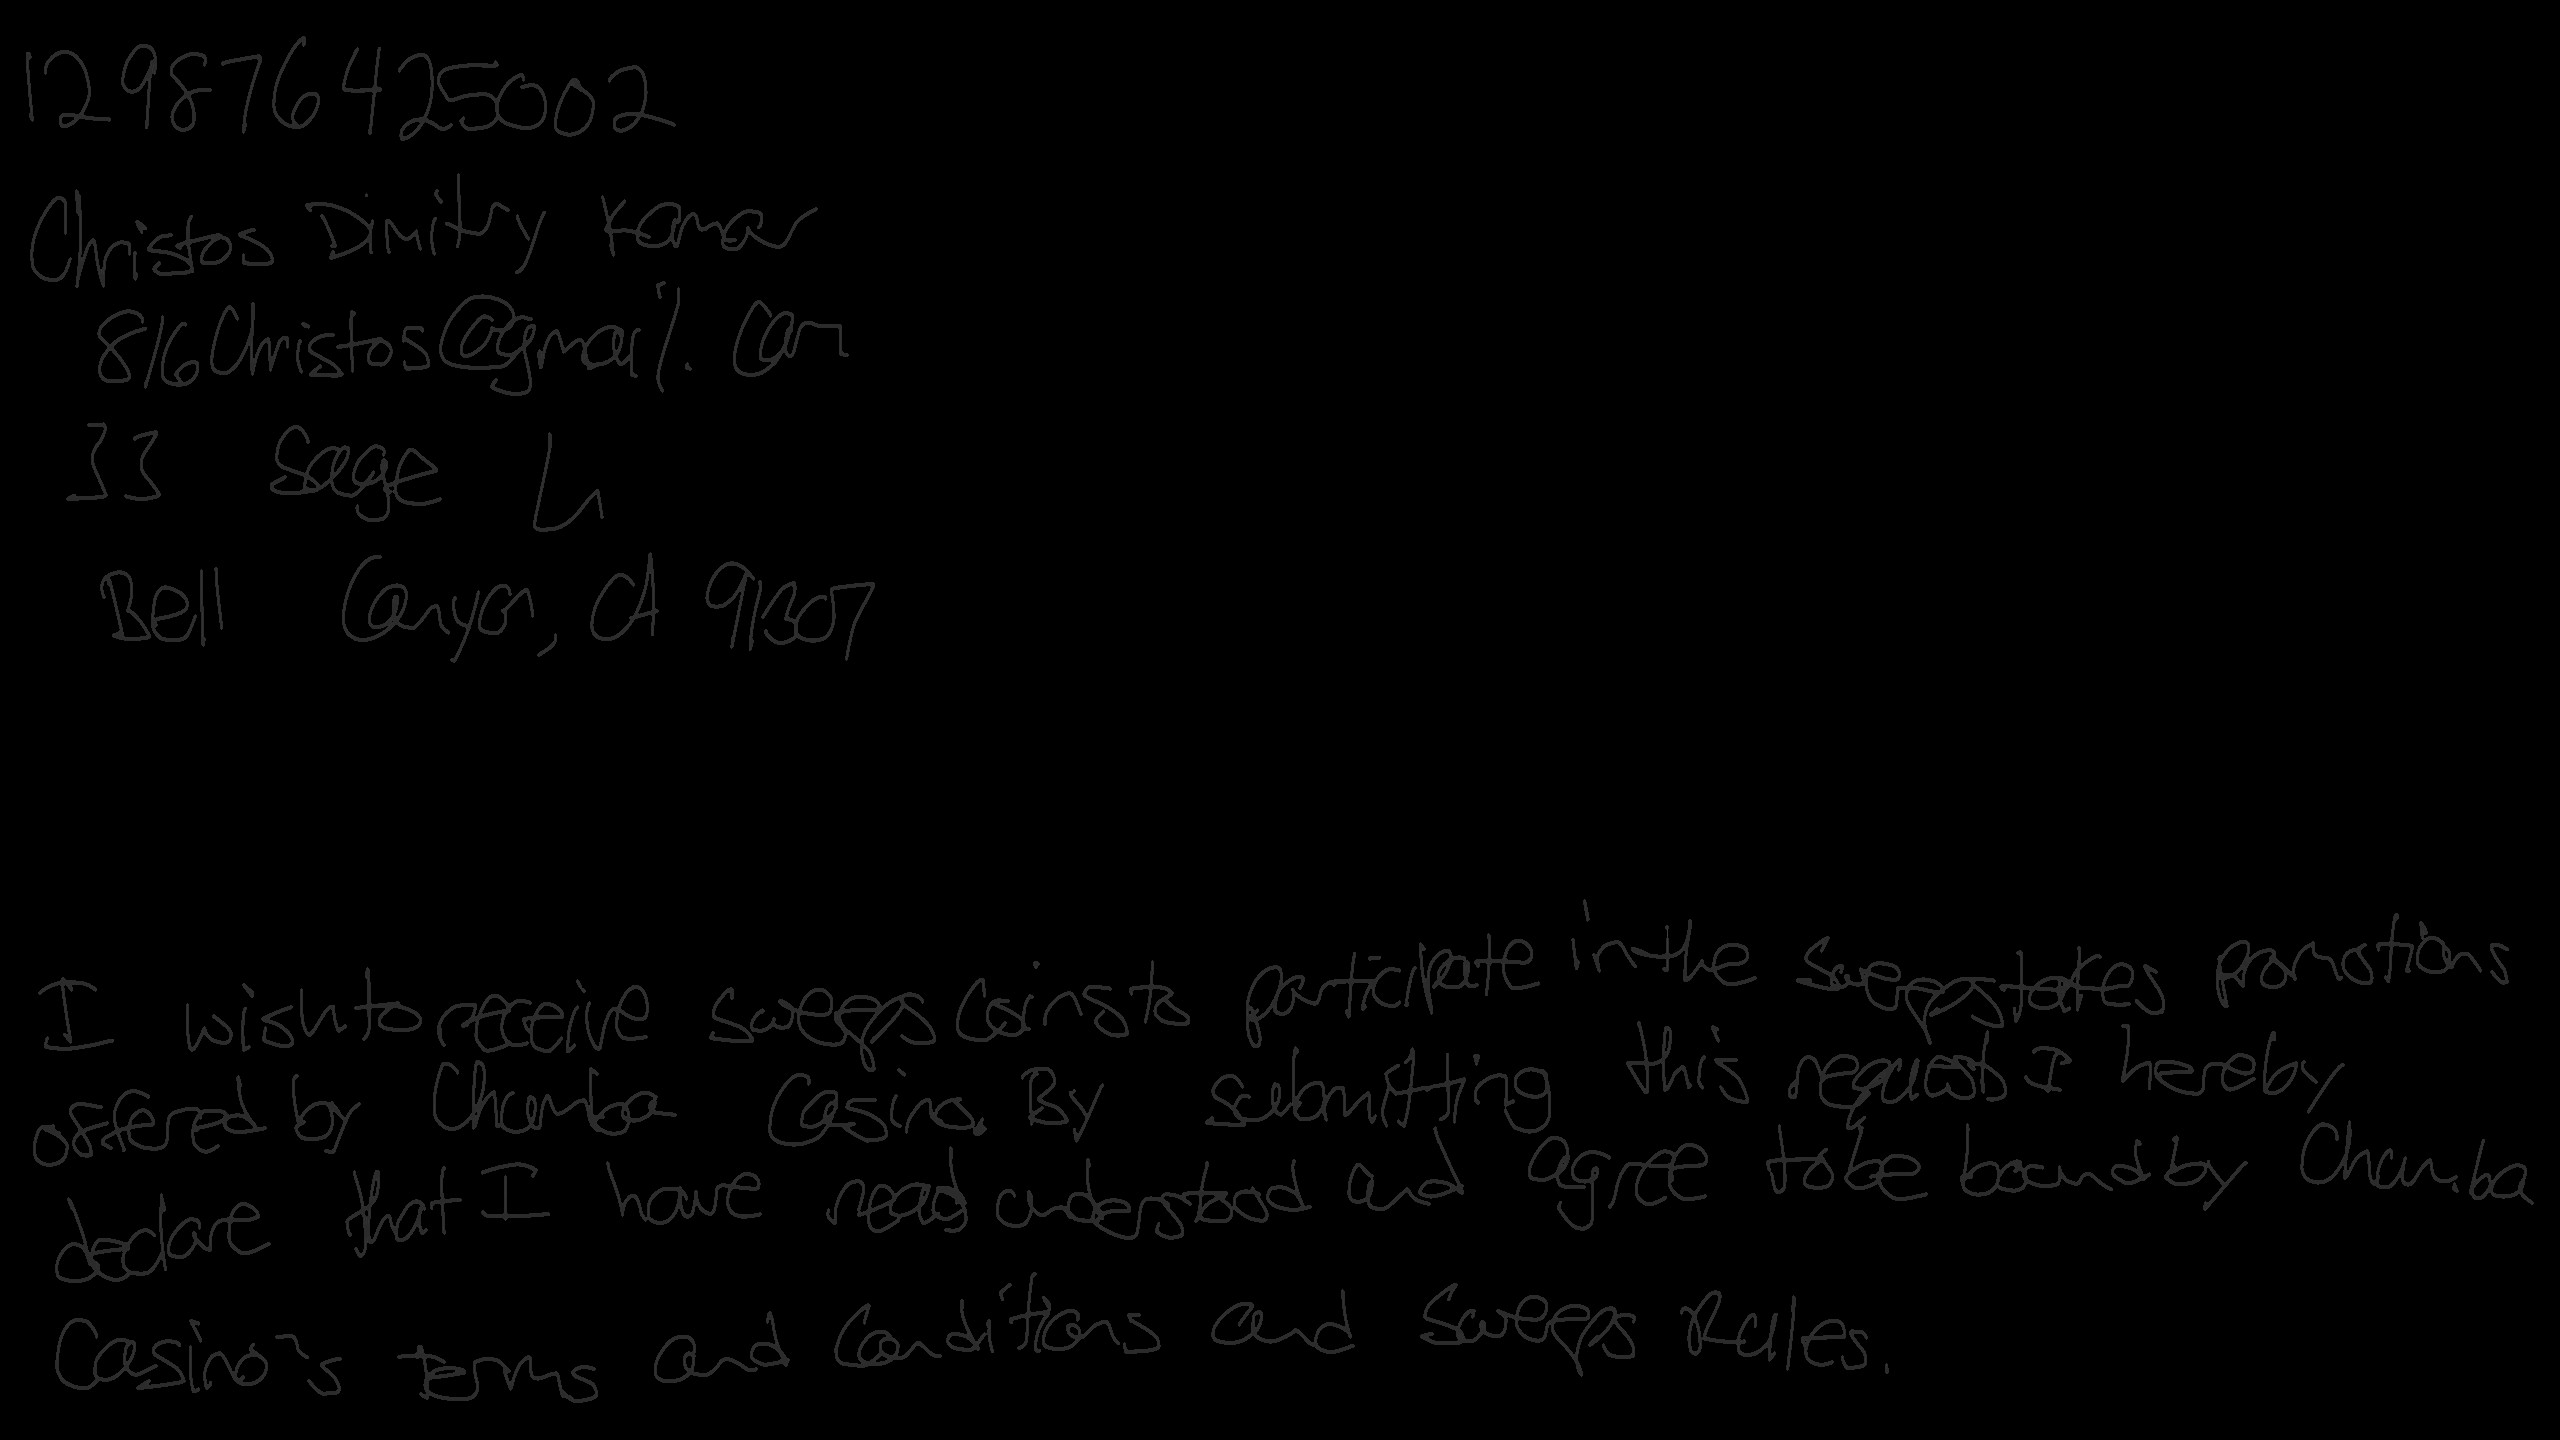 129876425002
Christos Dimitry Kamar
816Christos@gmail.com
33 Sage Ln
Bell Canyon, CA 91307
I wish to receive sweeps coins to participate in the sweepstakes promotions
offered by Chumba Casino. By submitting this request I hereby
declare that I have read understood and agree to be bound by Chumba
Casino's terms and conditions and sweeps Rules.